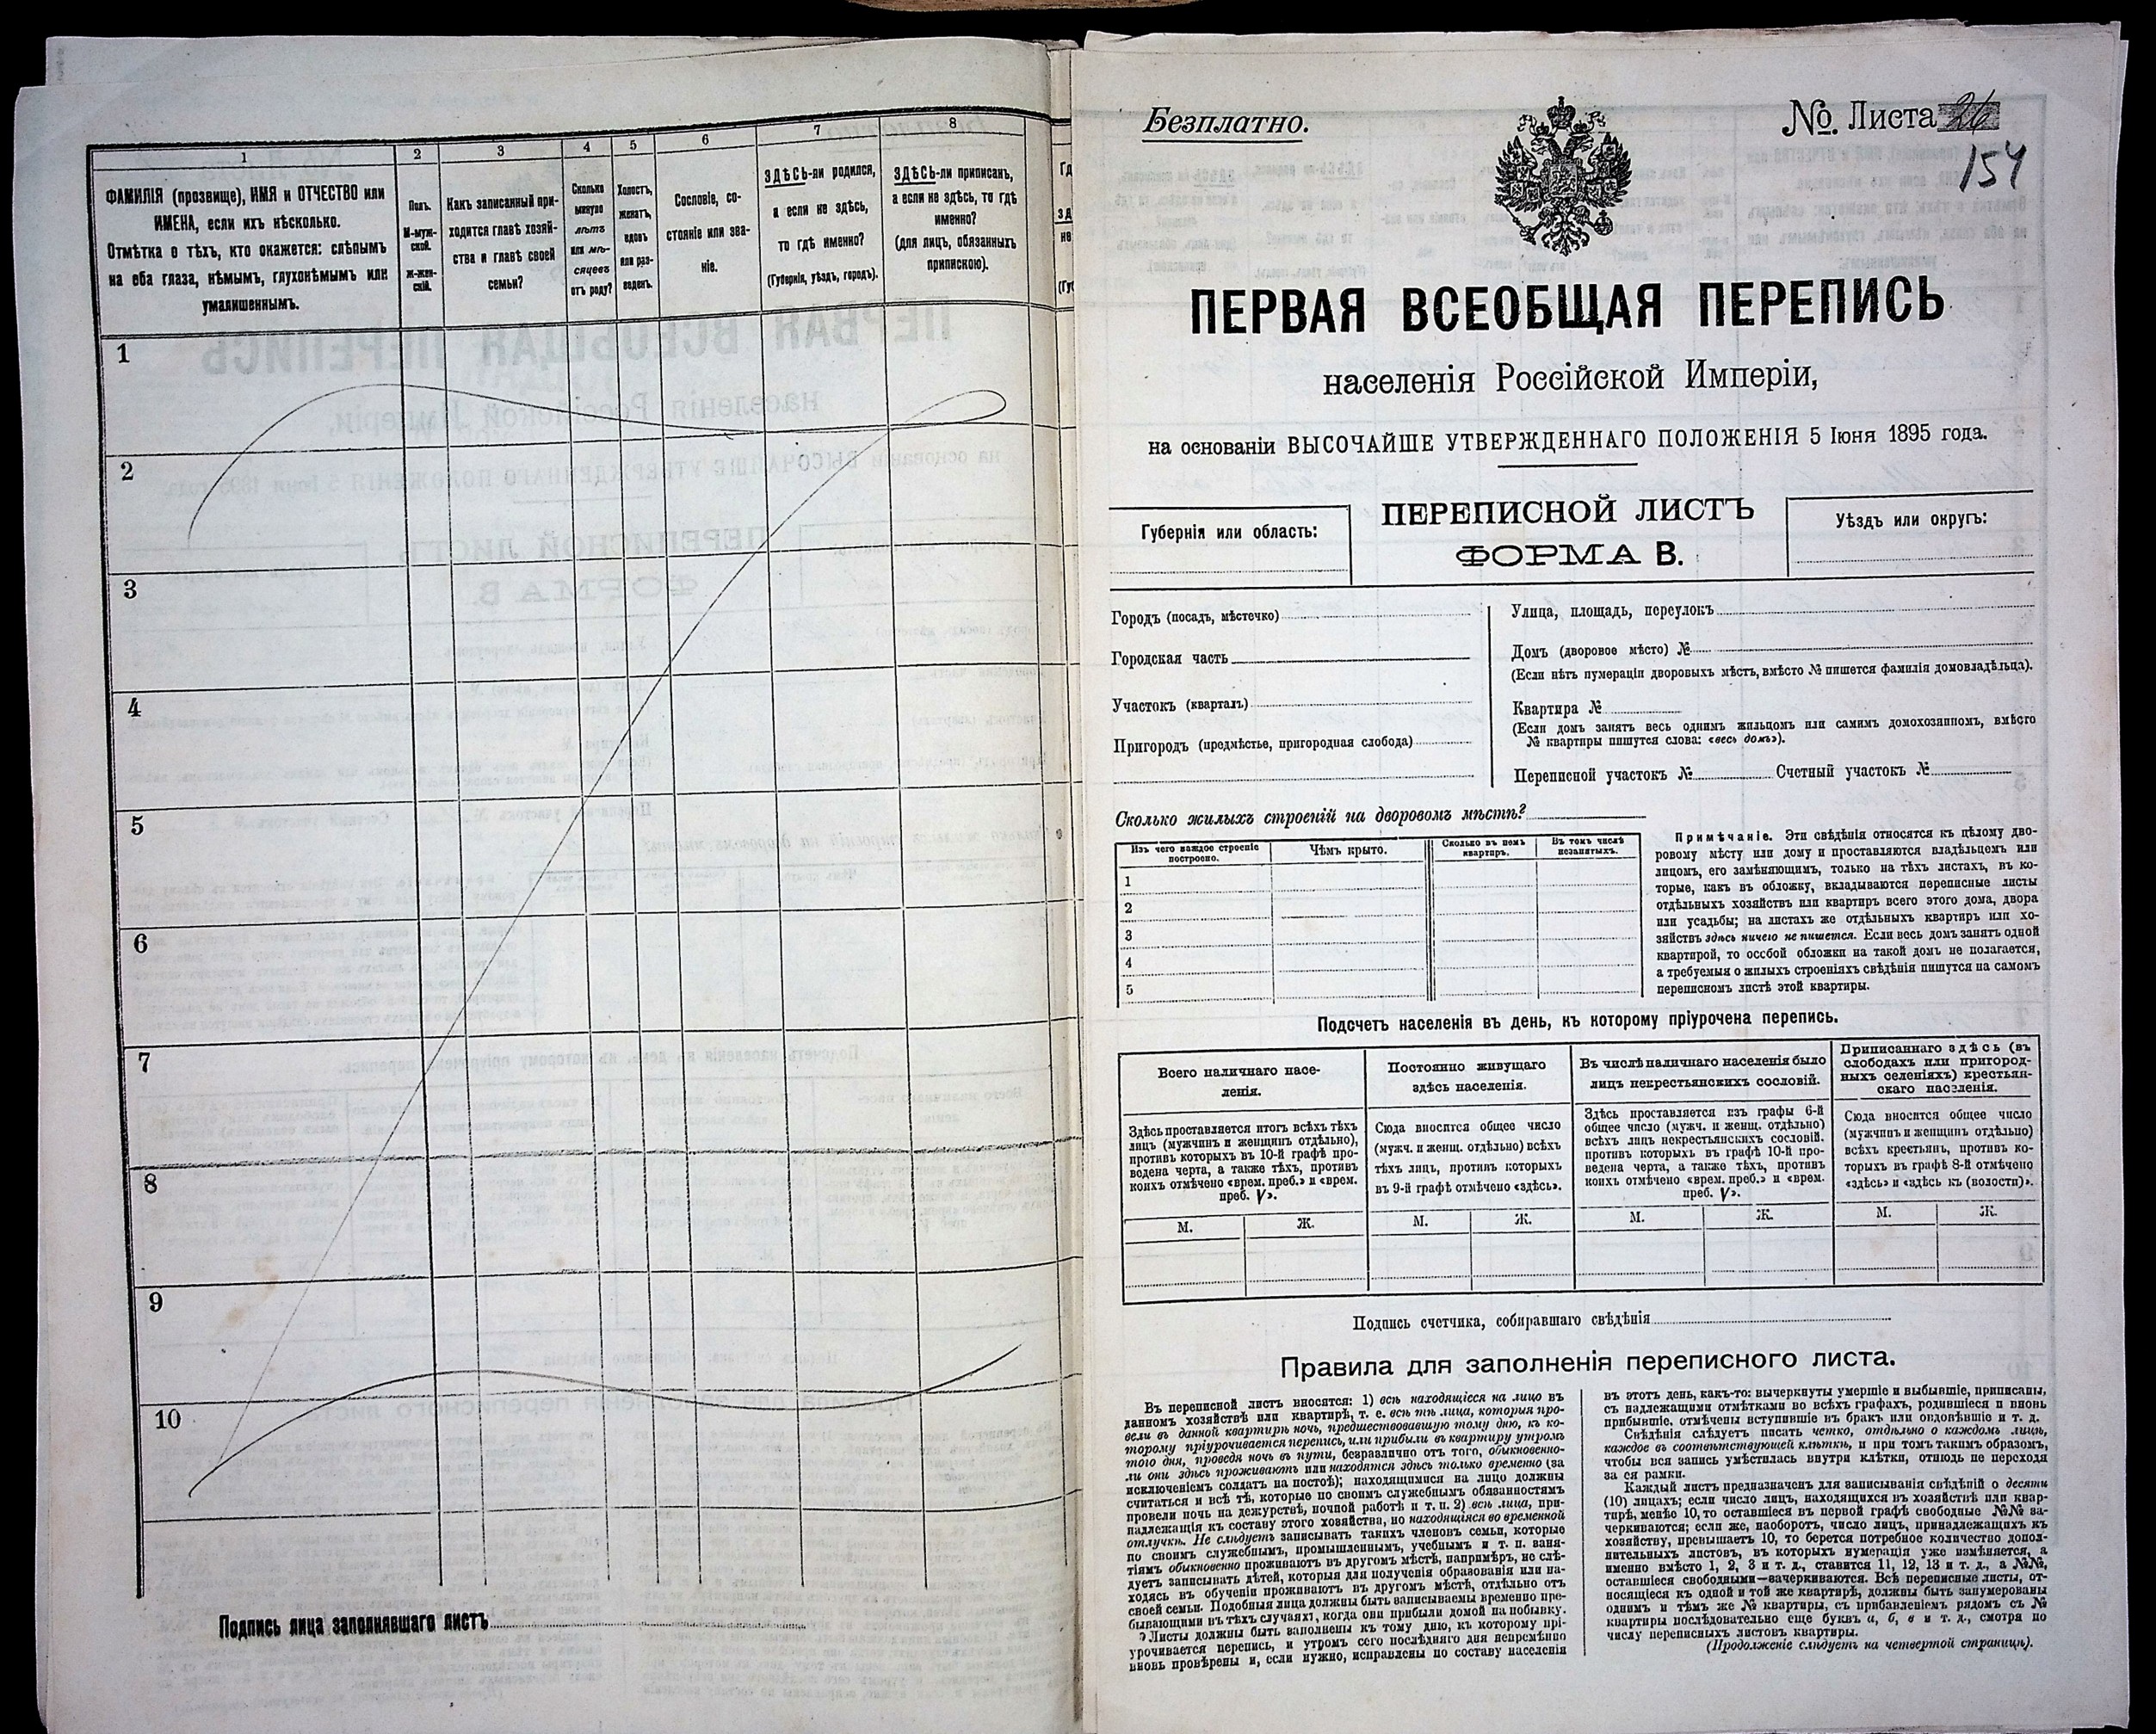 1
ФАМИЛІЯ (прозвище), ИМЯ и ОТЧЕСТВО или
ИМЕНА, если ихъ нѣсколько.
Отмѣтка о тѣхъ, кто окажется: слѣпымъ
на оба глаза, нѣмымъ, глухонѣмымъ или
умалишеннымъ.
2
Полъ.
М-муж-
ской.
Ж-жен-
скій.
3
Какъ записанный при-
ходится главѣ хозяй-
ства и главѣ своей
семьи?
4
Сколько
минуло
лѣтъ
или мѣ-
сяцевъ
отъ роду?
5
Холостъ,
женатъ,
вдовъ
или раз-
веденъ.
6
Сословіе, со-
стояніе или зва-
ніе.
7
ЗДѢСЬ-ли родился,
а если не здѣсь,
то гдѣ именно?
(Губернія, уѣздъ, городъ).
8
ЗДѢСЬ-ли приписанъ,
а если не здѣсь, то гдѣ
именно?
(для лицъ, обязанныхъ
припискою).
1
2
3
4
5
6
7
8
9
10
Подпись лица заполнявшаго листъ
Безплатно.
№ Листа 26
154
ПЕРВАЯ ВСЕОБЩАЯ ПЕРЕПИСЬ
населенія Россійской Имперіи,
на основаніи ВЫСОЧАЙШЕ УТВЕРЖДЕННАГО ПОЛОЖЕНІЯ 5 Іюня 1895 года.
Губернія или область:
ПЕРЕПИСНОЙ ЛИСТЪ
ФОРМА В.
Уѣздъ или округъ:
Городъ (посадъ, мѣстечко)
Городская часть
Участокъ (кварталъ)
Пригородъ (предмѣстье, пригородная слобода)
Улица, площадь, переулокъ
Домъ (дворовое мѣсто) №
(Если нѣтъ нумераціи дворовыхъ мѣстъ, вмѣсто № пишется фамилія домовладѣльца).
Квартира №
(Если домъ занятъ весь однимъ жильцомъ или самимъ домохозяиномъ, вмѣсто
№ квартиры пишутся слова: «весь домъ»).
Переписной участокъ № Счетный участокъ №
Сколько жилыхъ строеній на дворовомъ мѣстѣ?
Изъ чего каждое строеніе
построено.
Чѣмъ крыто.
Сколько въ немъ
квартиръ.
Въ томъ числѣ
незанятыхъ.
1
2
3
4
5
Примѣчаніе. Эти свѣдѣнія относятся къ цѣлому дво-
ровому мѣсту или дому и проставляются владѣльцемъ или
лицомъ, его замѣняющимъ, только на тѣхъ листахъ, въ ко-
торые, какъ въ обложку, вкладываются переписные листы
отдѣльныхъ хозяйствъ или квартиръ всего этого дома, двора
или усадьбы; на листахъ же отдѣльныхъ квартиръ или хо-
зяйствъ здѣсь ничего не пишется. Если весь домъ занятъ одной
квартирой, то особой обложки на такой домъ не полагается,
а требуемыя о жилыхъ строеніяхъ свѣдѣнія пишутся на самомъ
переписномъ листѣ этой квартиры.
Подсчетъ населенія въ день, къ которому пріурочена перепись.
Всего наличнаго насе-
ленія.
Здѣсь проставляется итогъ всѣхъ тѣхъ
лицъ (мужчинъ и женщинъ отдѣльно),
противъ которыхъ въ 10-й графѣ про-
ведена черта, а также тѣхъ, противъ
коихъ отмѣчено «врем. преб.» и «врем.
преб. V».
М. Ж.
Постоянно живущаго
здѣсь населенія.
Сюда вносится общее число
(мужч. и женщ. отдѣльно) всѣхъ
тѣхъ лицъ, противъ которыхъ
въ 9-й графѣ отмѣчено «здѣсь».
М. Ж.
Въ числѣ наличнаго населенія было
лицъ некрестьянскихъ сословій.
Здѣсь проставляется изъ графы 6-й
общее число (мужч. и женщ. отдѣльно)
всѣхъ лицъ некрестьянскихъ сословій.
противъ которыхъ въ графѣ 10-й про-
ведена черта, а также тѣхъ, противъ
коихъ отмѣчено «врем. преб.» и «врем.
преб. V».
М. Ж.
Приписаннаго здѣсь (въ
слободахъ или пригород-
ныхъ селеніяхъ) крестьян-
скаго населенія.
Сюда вносится общее число
(мужчинъ и женщинъ отдѣльно)
всѣхъ крестьянъ, противъ ко-
торыхъ въ графѣ 8-й отмѣчено
«здѣсь» и «здѣсь къ (волости)».
М. Ж.
Подпись счетчика, собиравшаго свѣдѣнія
Правила для заполненія переписного листа.
Въ переписной листъ вносятся: 1) всѣ находящіеся на лицо въ
данномъ хозяйствѣ или квартирѣ, т. е. всѣ тѣ лица, которыя про-
вели въ данной квартирѣ ночь, предшествовавшую тому дню, къ ко-
торому пріурочивается перепись, или прибыли въ квартиру утромъ
того дня, проведя ночь въ пути, безразлично отъ того, обыкновенно-
ли они здѣсь проживаютъ или находятся здѣсь только временно (за
исключеніемъ солдатъ на постоѣ); находящимися на лицо должны
считаться и всѣ тѣ, которые по своимъ служебнымъ обязанностямъ
провели ночь на дежурствѣ, ночной работѣ и т. п. 2) всѣ лица, при-
надлежащія къ составу этого хозяйства, но находящіяся во временной
отлучкѣ. Не слѣдуетъ записывать такихъ членовъ семьи, которые
по своимъ служебнымъ, промышленнымъ, учебнымъ и т. п. заня-
тіямъ обыкновенно проживаютъ въ другомъ мѣстѣ, напримѣръ, не слѣ-
дуетъ записывать дѣтей, которыя для полученія образованія или на-
ходясь въ обученіи проживаютъ въ другомъ мѣстѣ, отдѣльно отъ
своей семьи. Подобныя лица должны быть записываемы временно пре-
бывающими въ тѣхъ случаяхъ, когда они прибыли домой на побывку.
Листы должны быть заполнены къ тому дню, къ которому прі-
урочивается перепись, и утромъ сего послѣдняго дня непремѣнно
вновь провѣрены и, если нужно, исправлены по составу населенія
въ этотъ день, какъ-то: вычеркнуты умершіе и выбывшіе, приписаны,
съ надлежащими отмѣтками во всѣхъ графахъ, родившіеся и вновь
прибывшіе, отмѣчены вступившіе въ бракъ или овдовѣвшіе и т. д.
Свѣдѣнія слѣдуетъ писать четко, отдѣльно о каждомъ лицѣ,
каждое въ соотвѣтствующей клѣткѣ, и при томъ такимъ образомъ,
чтобы вся запись умѣстилась внутри клѣтки, отнюдь не переходя
за ея рамки.
Каждый листъ предназначенъ для записыванія свѣдѣній о десяти
(10) лицахъ; если число лицъ, находящихся въ хозяйствѣ или квар-
тирѣ, менѣе 10, то оставшіеся въ первой графѣ свободные №№ за-
черкиваются; если же, наоборотъ, число лицъ, принадлежащихъ къ
хозяйству, превышаетъ 10, то берется потребное количество допол-
нительныхъ листовъ, въ которыхъ нумерація уже измѣняется, а
именно вмѣсто 1, 2, 3 и т. д., ставится 11, 12, 13 и т. д., а №№,
оставшіеся свободными—зачеркиваются. Всѣ переписные листы, от-
носящіеся къ одной и той же квартирѣ, должны быть занумерованы
однимъ и тѣмъ же № квартиры, съ прибавленіемъ рядомъ съ №
квартиры послѣдовательно еще буквъ а, б, в и т. д., смотря по
числу переписныхъ листовъ квартиры.
(Продолженіе слѣдуетъ на четвертой страницѣ).